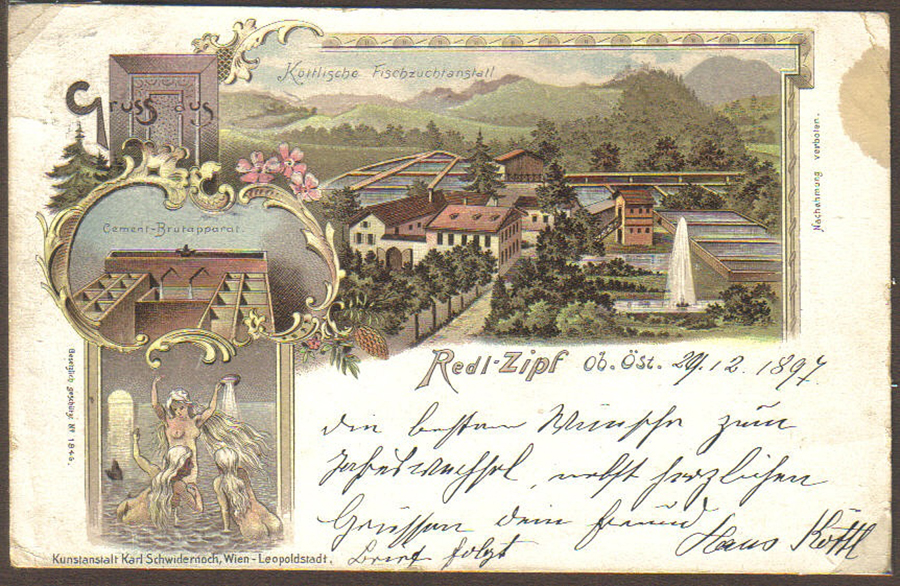 Gruss aus
Köttlische Fischzuchtanstalt
Cement-Brutapparat.
Nachahmung verboten.
Gesetzlich geschützt Nº 1844.
Redl-Zipf Ob. Öst. 29.12. 1897
die besten Wünsche zum
Jahreswechsel, nebst herzlichen
Grüssen dein Freund
Brief folgt
Hans Köttl
Kunstanstalt Karl Schwidernoch, Wien-Leopoldstadt.